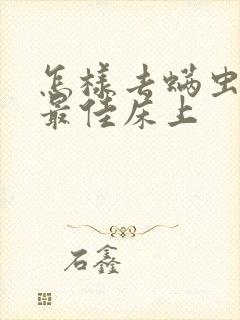 怎样去螨虫
最佳床上
石鑫